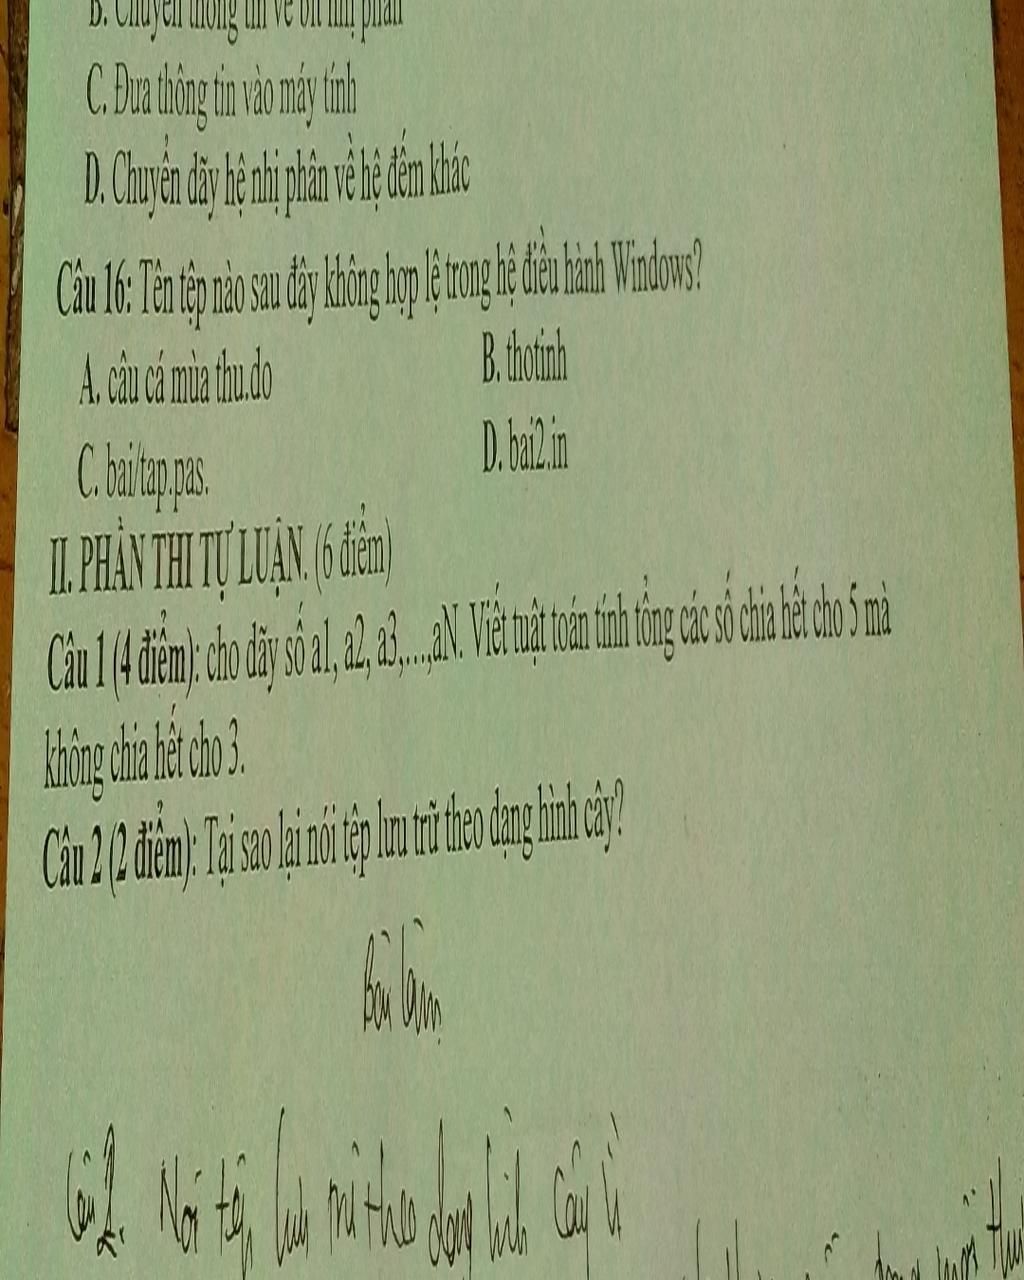 B. Chuyển thông tin về bit nhị phân
C. Đưa thông tin vào máy tính
D. Chuyển dãy hệ nhị phân về hệ đếm khác
Câu 16: Tên tệp nào sau đây không hợp lệ trong hệ điều hành Windows?
A. câu cá mùa thu.do B. thotinh
C. bai/tap.pas. D. bai2.in
II. PHẦN THI TỰ LUẬN. (6 điểm)
Câu 1 (4 điểm): cho dãy số a1, a2, a3,…,aN. Viết tuật toán tính tổng các số chia hết cho 5 mà
không chia hết cho 3.
Câu 2 (2 điểm): Tại sao lại nói tệp lưu trữ theo dạng hình cây?
Bài làm
Câu 2. Nói tệp lưu trữ theo dạng hình cây vì